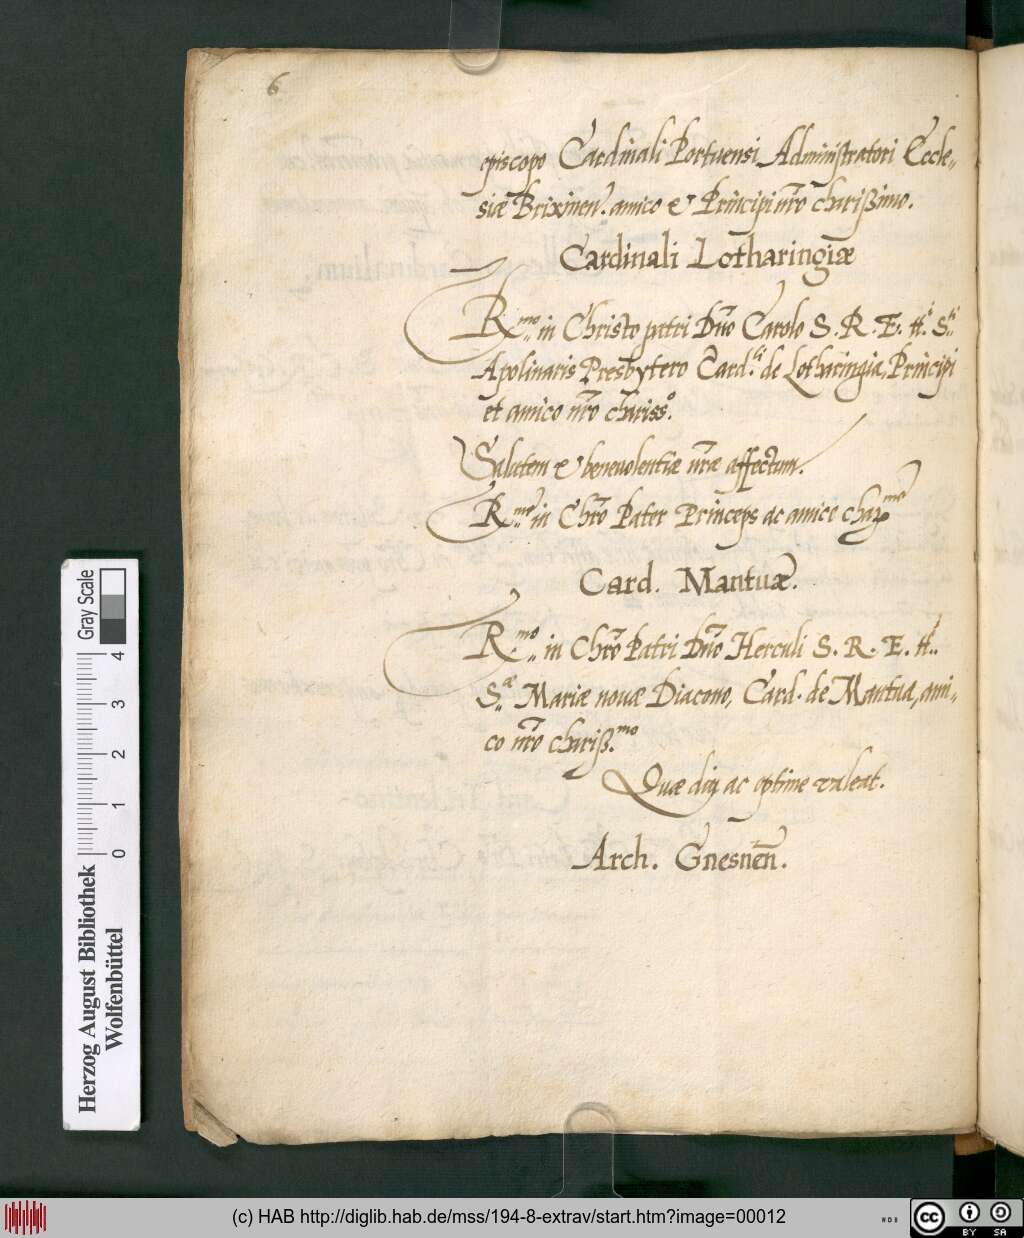 6
episcopo Cardinali Portuensi Administratori Eccle-
siæ Brixinen̄. amico & Principi nr̄o charißimo.
Cardinali Lotharingiæ
R.mo in Christo patri Dn̄o Carolo S. R. E. tt.i S.ti
Apolinaris Presbytero Card.li de Lotharingia, Principi
et amico nr̄o chariss.o
Salutem & benevolentiæ nr̄æ affectum.
R.me in Chr̄o Pater Princeps ac amice char.me
Card. Mantuæ.
R.mo in Chr̄o Patri Dn̄o Herculi S. R. E. tt.
S.æ Mariæ novæ Diacono, Card. de Mantua, ami-
co nr̄o chariß.mo
Quæ diu ac optime valeat.
Arch. Gnesnen̄.
Gray Scale
0 1 2 3 4
Herzog August Bibliothek
Wolfenbüttel
(c) HAB http://diglib.hab.de/mss/194-8-extrav/start.htm?image=00012
WDB
cc BY SA